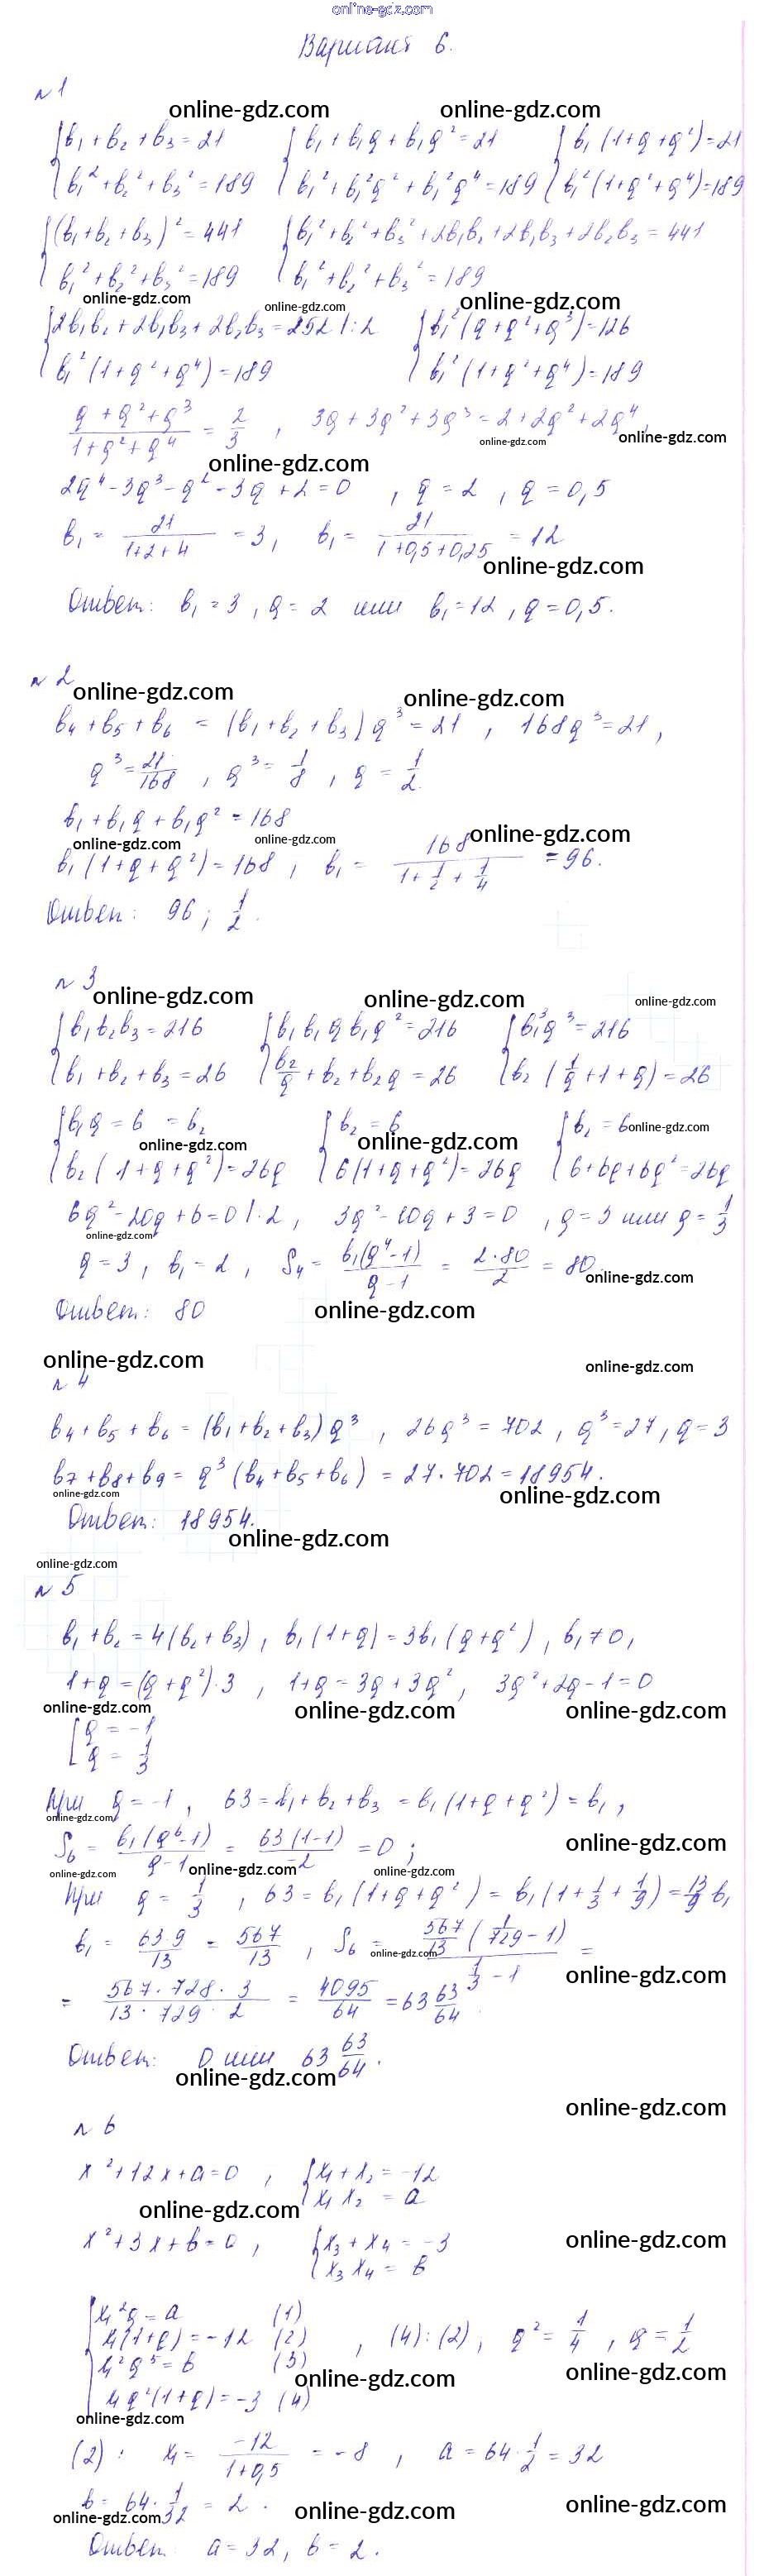 online-gdz.com
Вариант 6.
№1
online-gdz.com online-gdz.com
{b₁ + b₂ + b₃ = 21 {b₁ + b₁q + b₁q² = 21 {b₁(1+q+q²) = 21
{b₁² + b₂² + b₃² = 189 {b₁² + b₁²q² + b₁²q⁴ = 189 {b₁²(1+q²+q⁴) = 189
{(b₁+b₂+b₃)² = 441 {b₁²+b₂²+b₃²+2b₁b₂+2b₁b₃+2b₂b₃ = 441
{b₁²+b₂²+b₃² = 189 {b₁²+b₂²+b₃² = 189
online-gdz.com online-gdz.com online-gdz.com
{2b₁b₂ + 2b₁b₃ + 2b₂b₃ = 252 |:2 {b₁²(q+q²+q³) = 126
{b₁²(1+q²+q⁴) = 189 {b₁²(1+q²+q⁴) = 189
(q+q²+q³)/(1+q²+q⁴) = 2/3 , 3q+3q²+3q³ = 2+2q²+2q⁴,
online-gdz.com online-gdz.com
online-gdz.com
2q⁴-3q³-q²-3q+2=0 , q=2 , q=0,5
b₁ = 21/(1+2+4) = 3, b₁ = 21/(1+0,5+0,25) = 12
online-gdz.com
Ответ: b₁=3, q=2 или b₁=12, q=0,5.
№2
online-gdz.com online-gdz.com
b₄+b₅+b₆ = (b₁+b₂+b₃)q³ = 21 , 168q³=21,
q³ = 21/168 , q³ = 1/8 , q = 1/2
b₁+b₁q+b₁q² = 168
online-gdz.com online-gdz.com online-gdz.com
b₁(1+q+q²) = 168 , b₁ = 168/(1+1/2+1/4) = 96.
Ответ: 96; 1/2.
№3
online-gdz.com online-gdz.com online-gdz.com
{b₁b₂b₃ = 216 {b₁b₁qb₁q² = 216 {b₁³q³ = 216
{b₁+b₂+b₃ = 26 {b₂/q+b₂+b₂q = 26 {b₂(1/q+1+q) = 26
{b₁q = 6 = b₂ {b₂ = 6 {b₂ = 6
online-gdz.com online-gdz.com online-gdz.com
{b₂(1+q+q²) = 26q {6(1+q+q²) = 26q {6+6q+6q² = 26q
6q²-20q+6=0 |:2, 3q²-10q+3=0 , q=3 или q=1/3
online-gdz.com
q=3, b₁=2, S₄ = b₁(q⁴-1)/(q-1) = 2·80/2 = 80.
online-gdz.com
Ответ: 80
online-gdz.com
online-gdz.com online-gdz.com
№4
b₄+b₅+b₆ = (b₁+b₂+b₃)q³ , 26q³=702, q³=27, q=3
b₇+b₈+b₉ = q³(b₄+b₅+b₆) = 27·702 = 18954.
online-gdz.com online-gdz.com
Ответ: 18954.
online-gdz.com
online-gdz.com
№5
b₁+b₂ = 4(b₂+b₃), b₁(1+q) = 3b₁(q+q²), b₁≠0,
1+q = (q+q²)·3 , 1+q = 3q+3q², 3q²+2q-1=0
online-gdz.com online-gdz.com online-gdz.com
[q = -1
[q = 1/3
При q=-1, 63 = b₁+b₂+b₃ = b₁(1+q+q²) = b₁,
online-gdz.com online-gdz.com
S₆ = b₁(q⁶-1)/(q-1) = 63(1-1)/-2 = 0;
online-gdz.com online-gdz.com online-gdz.com
При q = 1/3 , 63 = b₁(1+q+q²) = b₁(1+1/3+1/9) = 13/9 b₁
b₁ = 63·9/13 = 567/13 , S₆ = 567/13 (1/729 - 1)/(1/3 - 1) =
online-gdz.com online-gdz.com
= 567·728·3/13·729·2 = 4095/64 = 63 63/64.
Ответ: 0 или 63 63/64.
online-gdz.com
online-gdz.com
№6
x²+12x+a=0 , {x₁+x₂ = -12
{x₁x₂ = a
online-gdz.com
x²+3x+b=0 , {x₃+x₄ = -3
{x₃x₄ = b
online-gdz.com
{x₁²q = a (1)
x₁(1+q) = -12 (2) , (4):(2), q² = 1/4 , q = 1/2
x₁²q⁵ = b (3)
online-gdz.com online-gdz.com
x₁q²(1+q) = -3 (4)
online-gdz.com
(2): x₁ = -12/(1+0,5) = -8 , a = 64·1/2 = 32
b = 64·1/32 = 2.
online-gdz.com online-gdz.com online-gdz.com
Ответ: a=32, b=2.